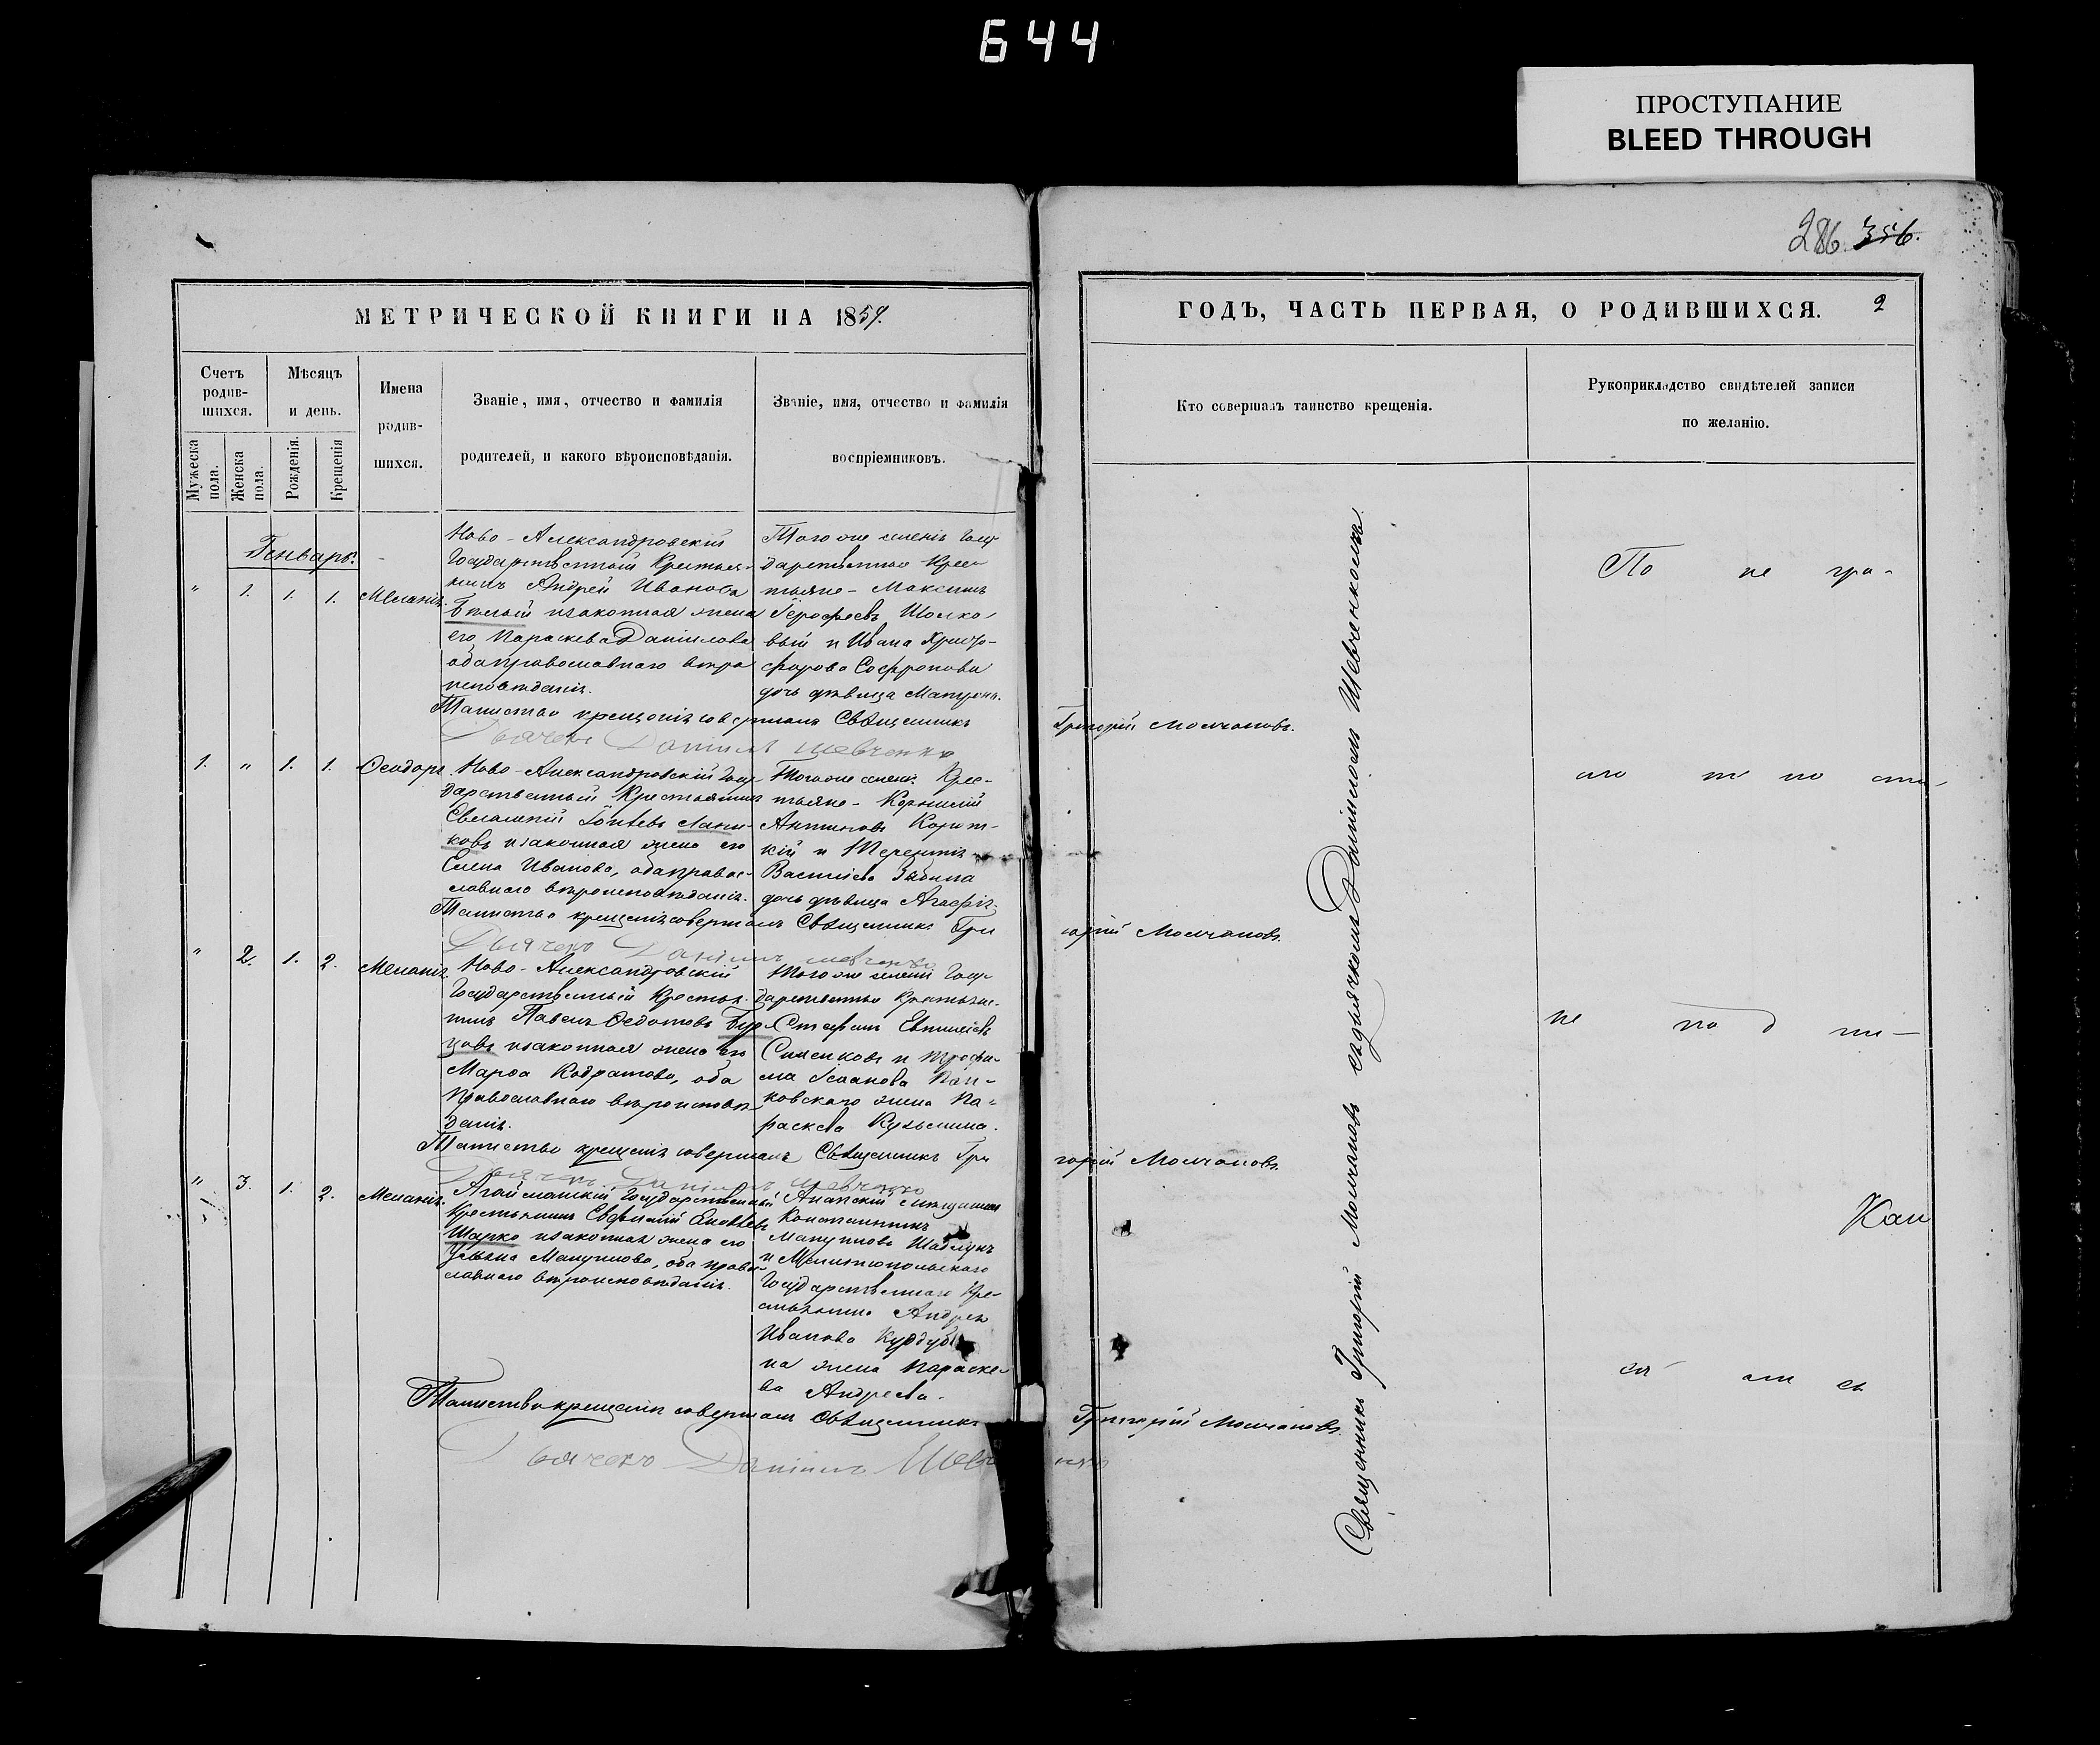 644
ПРОСТУПАНИЕ
BLEED THROUGH
286. 356.
МЕТРИЧЕСКОЙ КНИГИ НА 1859.
ГОДЪ, ЧАСТЬ ПЕРВАЯ, О РОДИВШИХСЯ. 2
Счетъ родив-шихся.
Мѣсяцъ и день.
Имена родив-шихся.
Званіе, имя, отчество и фамилія родителей, и какого вѣроисповѣданія.
Званіе, имя, отчество и фамилія воспріемниковъ.
Кто совершалъ таинство крещенія.
Рукоприкладство свидѣтелей записи по желанію.
Мужеска пола.
Женска пола.
Рожденія.
Крещенія
Генварь.
" 1. 1. 1. Меланія.
Ново-Александровскій
Государственный Крестья-
нинъ Андрей Иванова
Бѣлый и законная жена
его Параскева Даніилова
оба православнаго вѣро
исповѣданія.
Того же селенія Госу
дарственные Крес
тьяне - Максимъ
Шолко
вый и Ивана Христо-
форова Софронова
дочь дѣвица Матрона.
Таинство крещенія совершалъ Священникъ
Григорій Молчановъ.
Дьячекъ Даніилъ Шевченко
1. " 1. 1. Ѳеодоръ.
Ново-Александровскій Госу
дарственный Крестьянинъ
Лани-
ковъ и законная жена его
Елена Иванова, оба правос-
лавнаго вѣроисповѣданія.
Того же селен. Крес-
тьяне - Корнилій
Антиповъ Корот-
кій и Терентія
Васильева Зыбина
дочь дѣвица Агафія.
Таинство крещенія совершалъ Священникъ Гри
горій Молчановъ.
Дьячекъ Даніилъ Шевченко
" 2. 1. 2. Меланія.
Ново-Александровскій
Государственный Крестья-
нинъ Павелъ Ѳедотовъ Бур
цовъ и законная жена его
Марѳа Кодратова, оба
Православнаго вѣроисповѣ
данія.
Того же селенія Госу
дарственные Крестьяне.
Стефанъ
и Трофи-
ма
ковскаго жена Па-
раскева Кузьмина.
Таинство крещенія совершалъ Священникъ Гри
горій Молчановъ
Дьячекъ Даніилъ Шевченко
" 3. 1. 2. Меланія.
Агайманскій Государственный
Крестьянинъ Евфимій Яковлевъ
Шарко и законная жена его
Ульяна Мануилова, оба право-
славнаго вѣроисповѣданія.
Анапскій
Константинъ
Мануиловъ
и Мелитопольскаго
Государственнаго Кре-
стьянина Андрея
Иванова
на жена Параске-
ва Андреева.
Таинство крещенія совершалъ Священникъ
Григорій Молчановъ.
Дьячекъ Даніилъ Шевченко
Священникъ Григорій Молчановъ съ дьячкомъ Даніиломъ Шевченкомъ.
По не гра-
мо
не по д пи-
Кан